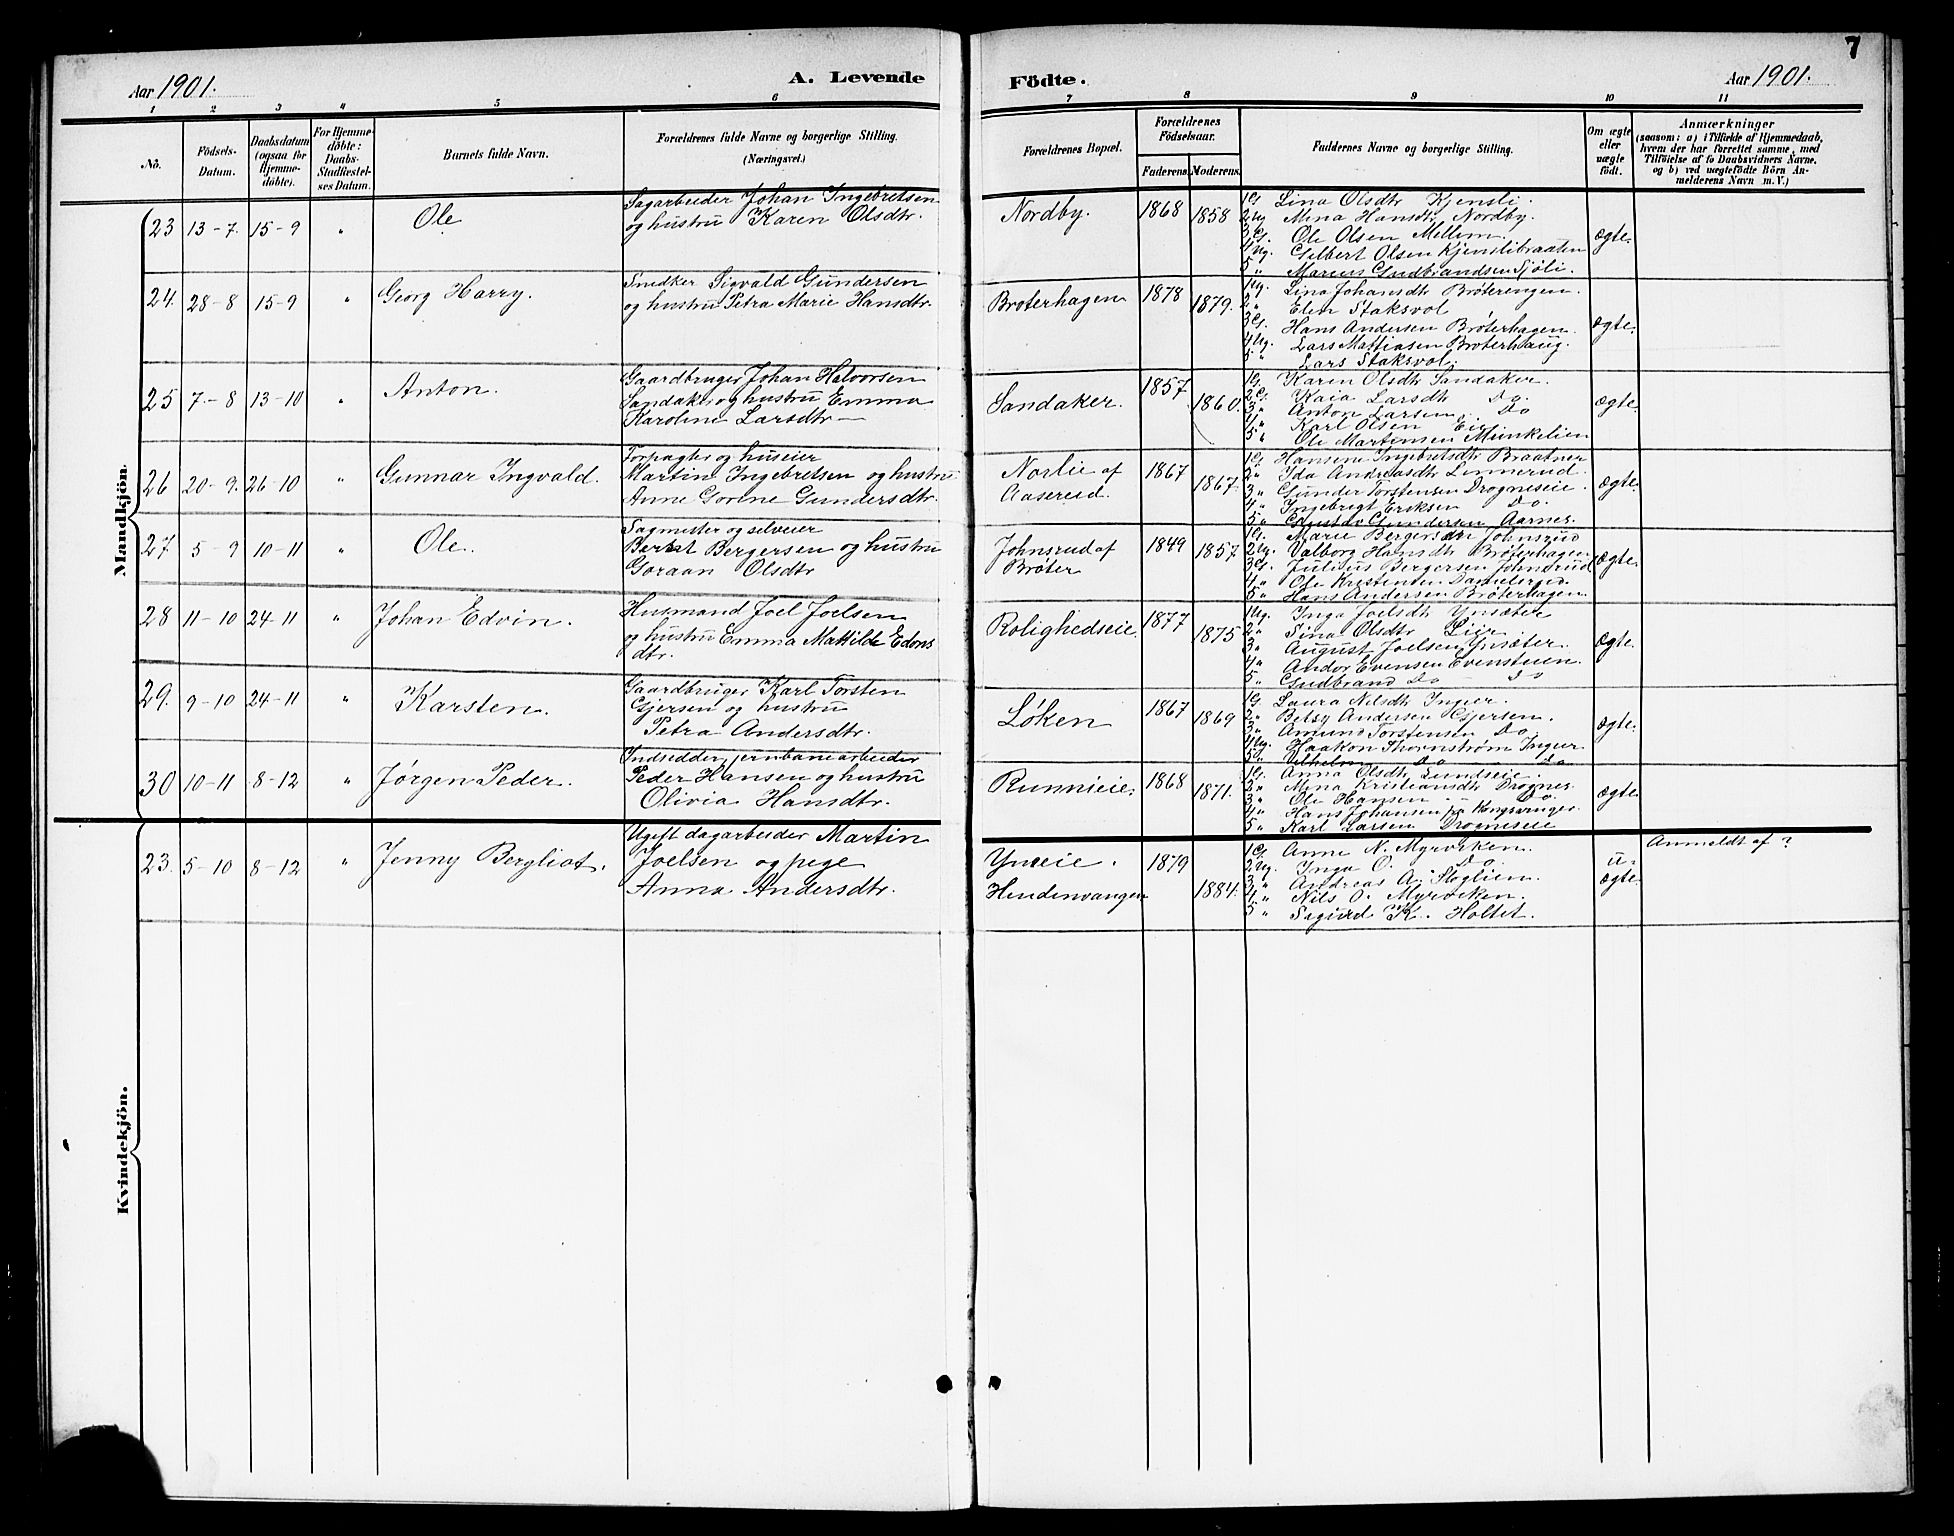 7
Aar 1901.
A. Levende
Födte.
Aar 1901.
1 2 3 4 5 6 7 8 9 10 11
No.
Födsels-
Datum.
Daabsdatum
(ogsaa for
Hjemme-
döbte).
For Hjemme-
döbte:
Daabs-
Stadfæstel-
ses Datum.
Barnets fulde Navn.
Forældrenes fulde Navne og borgerlige Stilling.
(Næringsvei.)
Forældrenes Bopæl.
Forældrenes
Födselsaar.
Faderens. Moderens.
Faddernes Navne og borgerlige Stilling.
Om ægte
eller
uægte
födt.
Anmærkninger
(saasom: a) i Tilfælde af Hjemmedaab,
hvem der har forrettet samme, med
Tilföielse af to Daabsvidners Navne,
og b) ved uægtefödte Börn An-
melderens Navn m. V.)
Mandkjön.
23 13-7. 15-9 " Ole
Sagarbeider Johan Ingebretsen
og hustru Karen Olsdtr.
Nordby. 1868 1858
1 G. Lina Olsdtr Kjensli.
2 Ug. Mina Hansdtr Nordby.
3 G. Ole Olsen Mellem.
4 Ug. Gilbert Olsen Kjenslibraaten
5 " Marius Gudbrandsen Sjöli.
ægte.
24. 28-8 15-9 " Georg Harry.
Snedker Sigvald Gundersen
og hustru Petra Marie Hansdtr.
Broterhagen 1878 1879.
1 Ug. Lina Johansdtr Bröterengen.
2 " Elen Staksvol
3 G. Hans Andersen Bröterhagen.
4 Ug. Lars Mattiasen Broterhaug.
5 " Lars Staksvol.
ægte.
25 7-8 13-10 " Anton.
Gaardbruger Johan Halvorsen
Sandaker og hustru Emma
Karoline Larsdtr
Sandaker. 1857 1860.
1 G. Karen Olsdtr Sandaker.
2 G. Kaia Larsdtr Do.
3 " Anton Larsen Do
4 " Karl Olsen Eie
5 " Ole Martinsen Munkelien
ægte.
26 20-9. 26-10 " Gunnar Ingvald.
Forpagter og huseier
Martin Ingebretsen og hustru
Anne Gorine Gundersdtr.
Norlie af
Aaserud. 1867 1867.
1 G. Hansine Ingebretsdtr Braatner
2 " Ida Andreasdtr Linnerud.
3 " Gunder Torstensen Drogneseie.
4 " Ingebrigt Eriksen Do.
5 " Gustav Gundersen Aarnes.
ægte.
27. 5-9 10-11 " Ole.
Sagmester og selveier
Bernt Bergersen og hustru
Goraan Olsdtr
Johnsrud af
Bröter 1849 1857
1 G. Marie Bergersdtr Johnsrud
2 Ug. Valborg Hansdtr Bröterhagen
3 G. Julius Bergersen Johnsrud
4 " Ole Kristensen Danielsrud.
5 " Hans Andersen Bröterhagen
ægte.
28 11-10 24-11 " Johan Edvin.
Husmand Joel Joelsen
og hustru Emma Mathilde Edons
dtr.
Rolighedseie 1877 1875
1 Ug. Inga Joelsdtr Ynsæter
2 " Sina Olsdtr Lier
3 " August Joelsen Ynsæter
4 " Andor Evensen Evensteien.
5 " Gudbrand Do Do
ægte.
29. 9-10 24-11 " Karsten.
Gaardbruger Karl Torsten
Gjersen og hustru
Petra Andersdtr.
Løken 1867 1869
1 G. Laura Nilsdtr Ingier.
2 " Betsy Andersen Gjersen.
3 " Amund Torstensen Do
4 Ug. Haakon Thornstrøm Ingier
5 " Vilhelm Do Do
ægte.
30 10-11 8-12 " Jørgen Peder.
Indsidder, jernbanearbeider
Peder Hansen og hustru
Olivia Hansdtr.
Runnieie. 1868 1871.
1 G. Anna Olsdtr Lundseie.
2 " Mina Kristiansdtr Drognes.
3 " Ole Hansen Do.
4 " Hans Johansen fra Kongsvinger.
5 " Karl Larsen Drogneseie
ægte.
Kvindekjön.
23. 5-10 8-12 " Jenny Bergliot.
Ugift dagarbeider Martin
Joelsen og pige
Anna Andersdtr.
Yneeie.
Hendenvangen 1879 1884.
1 G. Anne N. Myrviken.
2 Ug. Inga O. Do.
3 " Andreas A.
4 " Nils O. Myrviken.
5 " Sigurd K. Holtet.
u-
ægte.
Anmeldt af ?